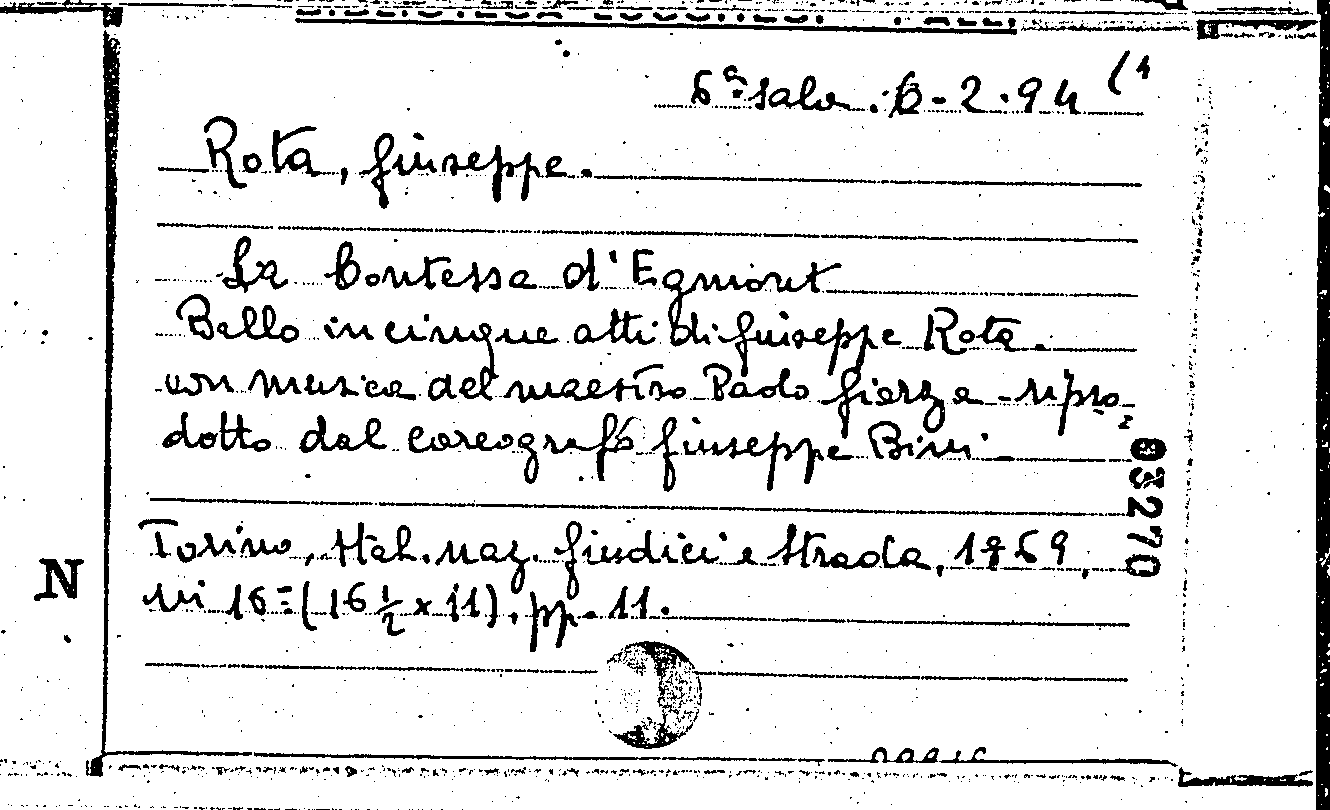 6ª sala. 6-2.94 (4
Rota, Giuseppe.
La Contessa d'Egmont
Ballo in cinque atti di Giuseppe Rota.
con musica del maestro Paolo Gierza - ripro-
dotto dal coreografo Giuseppe Bini -
03270
Torino, Stab. naz. Giudici e Strada, 1869,
N
in 16= (16 ½ x 11), pp. 11.